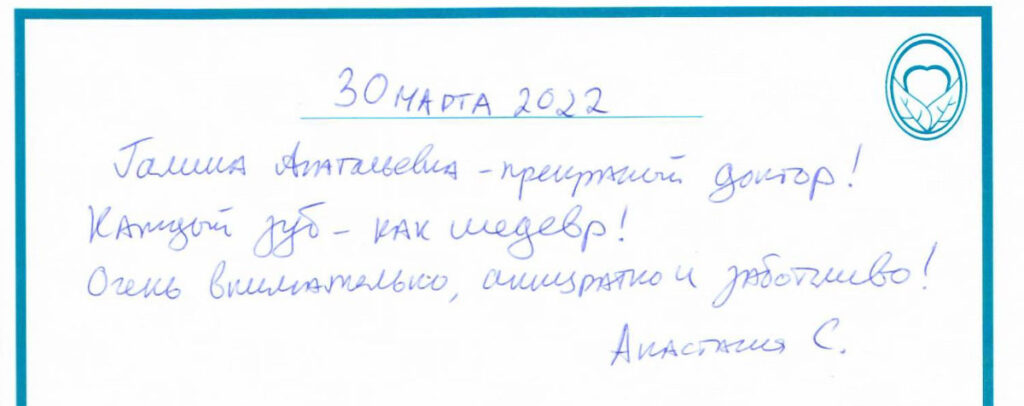 30 марта 2022
Галина Анатольевна - прекрасный доктор!
Каждый зуб - как шедевр!
Очень внимательно, аккуратно и заботливо!
Анастасия С.